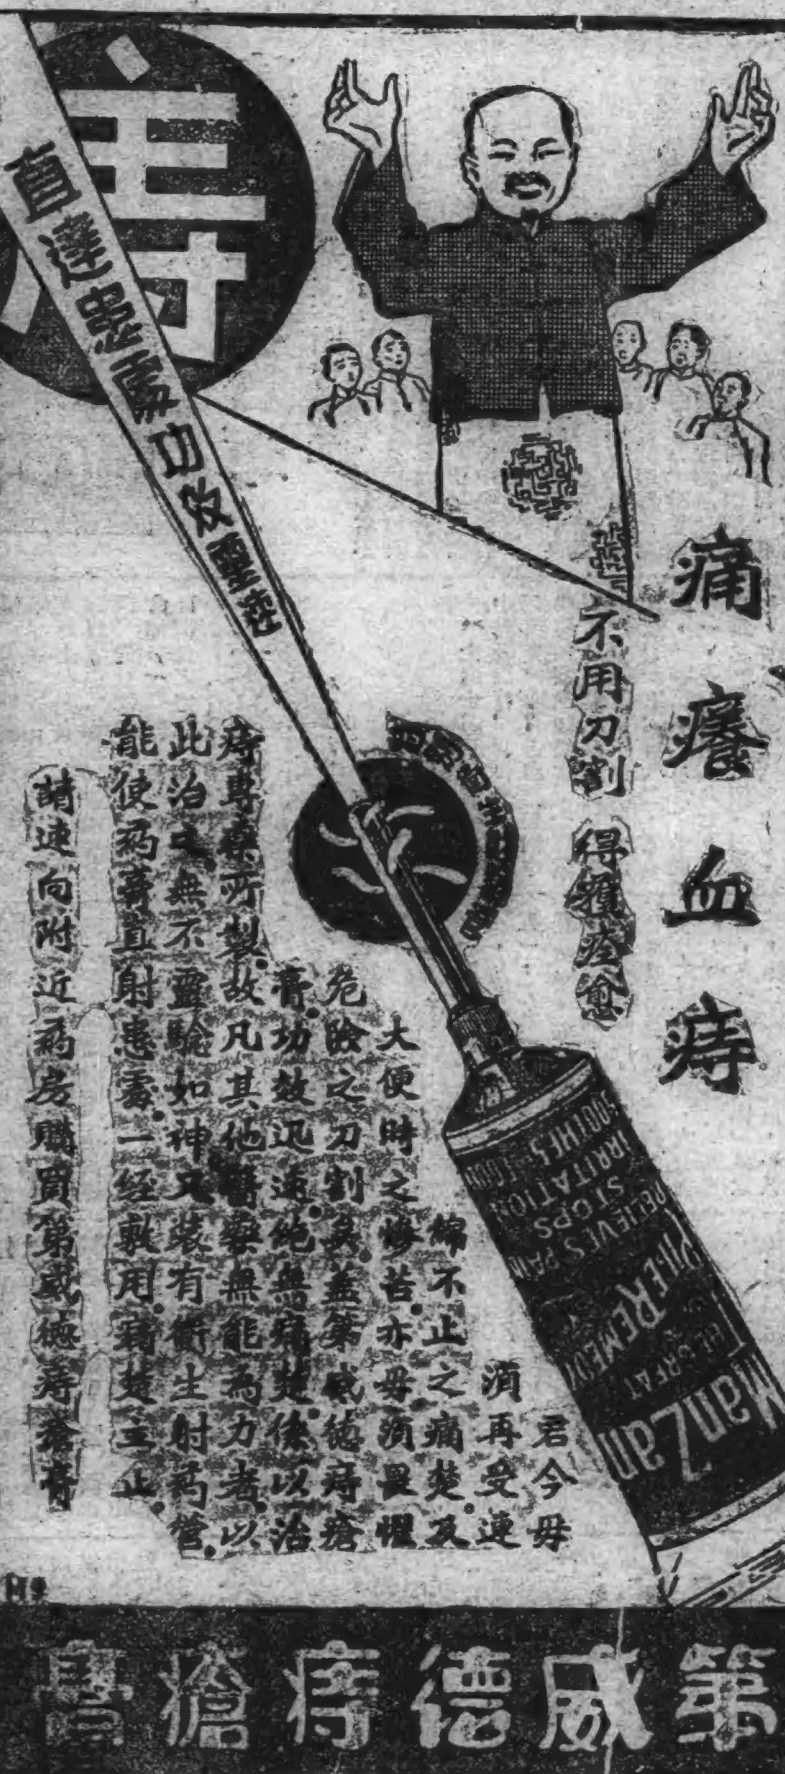 痔
痛癢血痔
不用刀割 得獲痊愈
君今毋
須再受連
綿不止之痛楚及
大便時之慘苦亦毋須畏懼
危險之刀割矣蓋第威德痔瘡
膏功效迅速絶無痛楚係以治
痔專藥所製故凡其他醫藥無能為力者以
此治之無不靈驗如神又裝有衛生射药管
能使药膏直射患處一經敷用痛楚立止
請速向附近药房購買第威德痔瘡膏
ManZan
THE GREAT
PILE REMEDY
RELIEVES PAIN
STOPS
IRRITATION
SOOTHES
第威德痔瘡膏